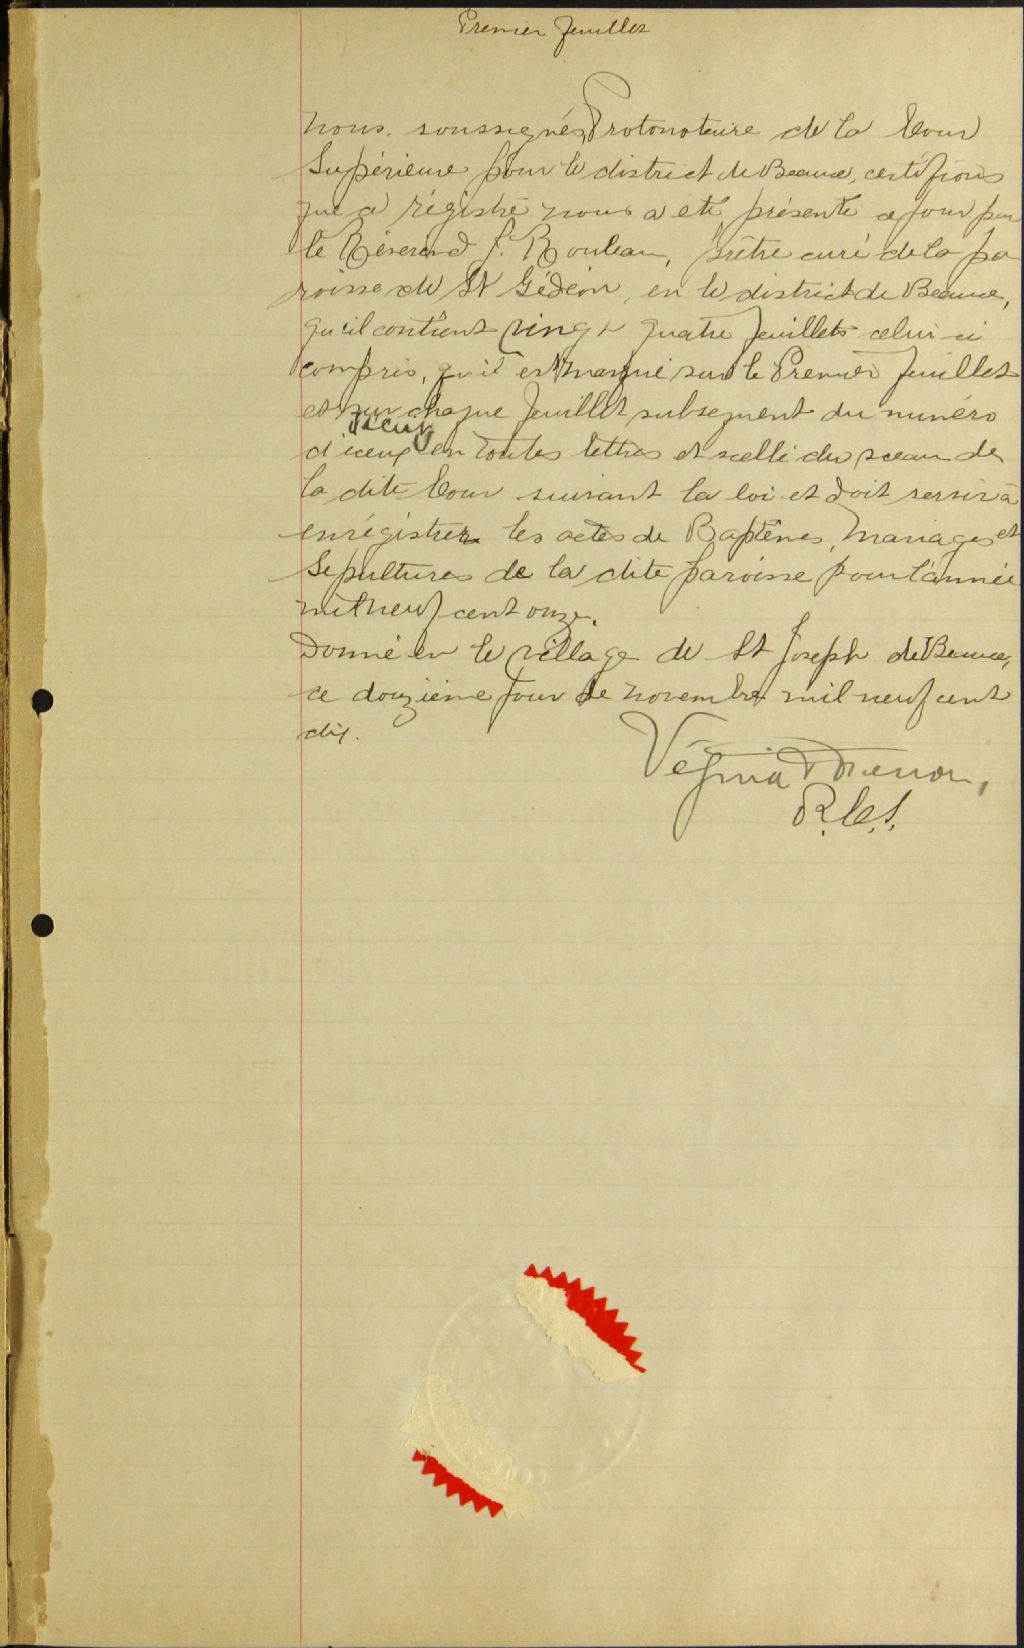 Premier feuillet
Nous, soussignés, Protonotaire de la Cour
Supérieure pour le district de Beauce, certifions
que ce régistre nous a été présenté ce jour par
le Révérend J. Rouleau, prêtre curé de la pa
roisse de St Gédéon, en le district de Beauce,
qu'il contient vingt quatre feuillets celui-ci
compris, qu'il est marqué sur le Premier feuillet
et sur chaque feuillet subsequent du numéro
d'iceux
d'iceux en toutes lettres et scellé du sceau de
la dite Cour suivant la loi et doit servir à
enrégistrer les actes de Baptêmes, Mariages et
Sepultures de la dite paroisse pour l'année
mil neuf cent onze.
Donné en le village de St Joseph de Beauce,
ce douzième jour de novembre mil neuf cent
dix.
Vézina
P.C.S.